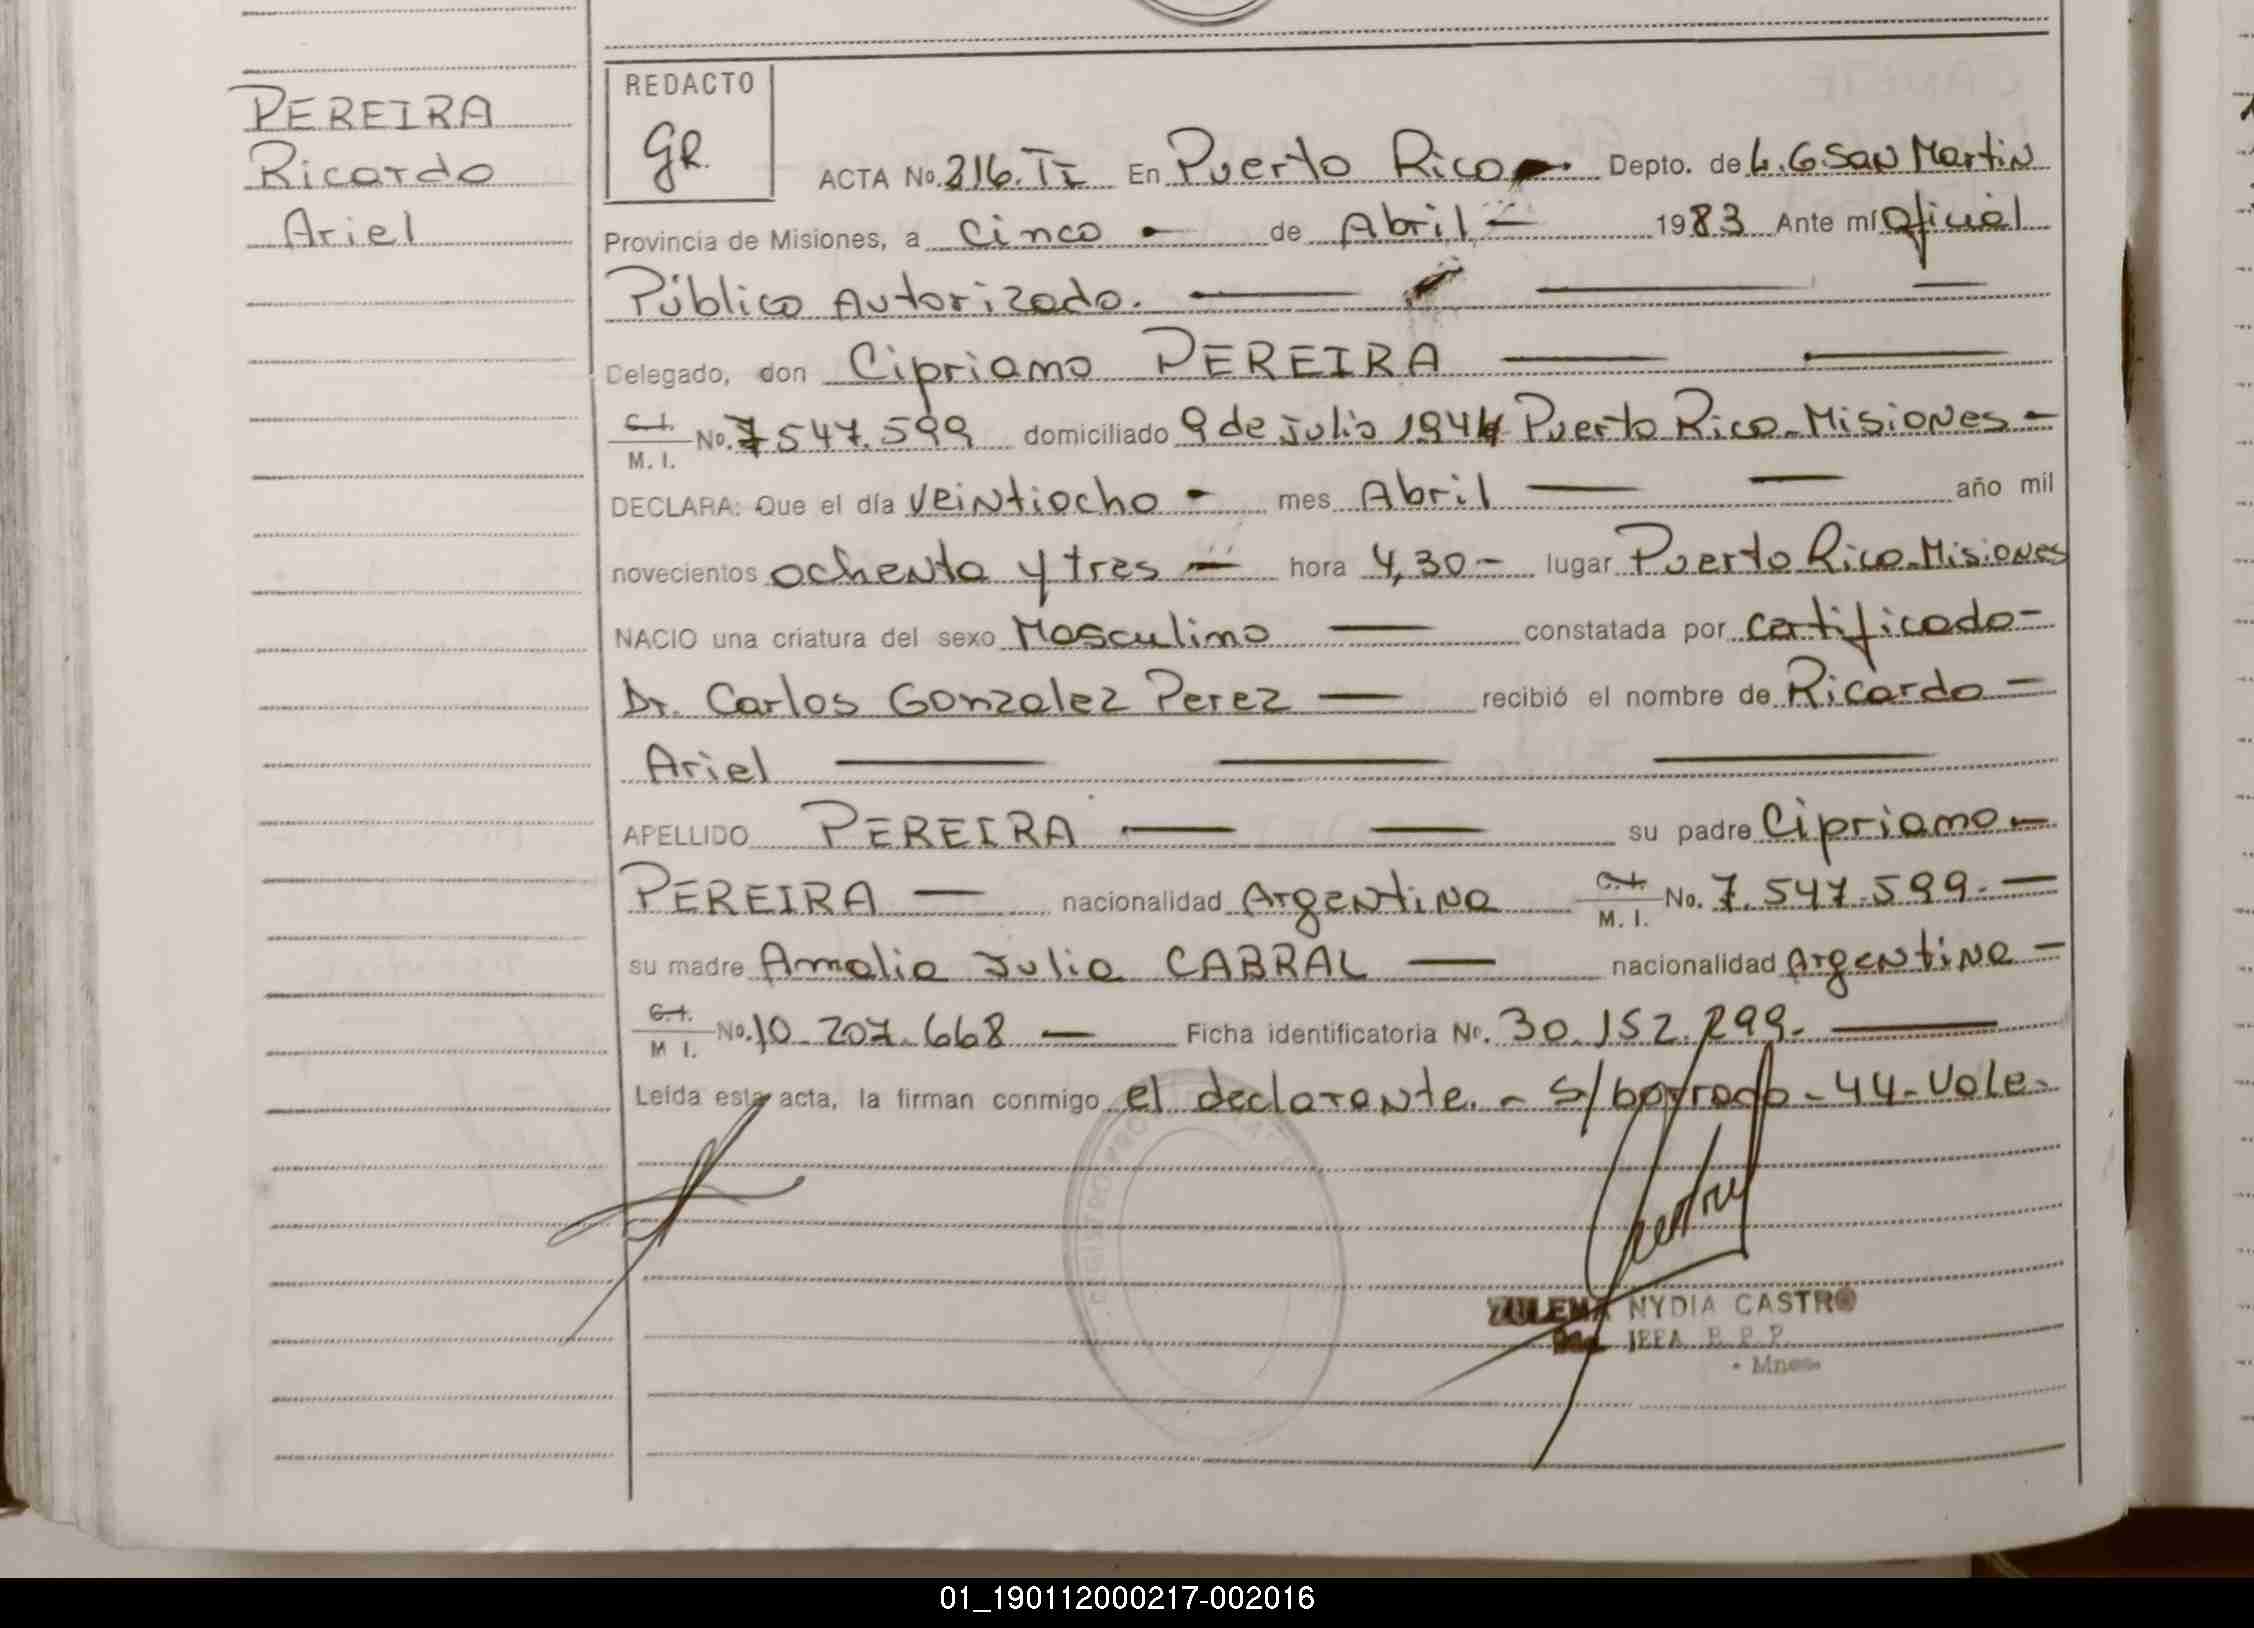 PEREIRA
Ricardo
Ariel
REDACTO
GR.
ACTA No. 316. TI En Puerto Rico Depto. de L. G. San Martin
Provincia de Misiones, a Cinco - de Abril - 1983 Ante mí Oficial
Público Autorizado.
Delegado, don Cipriano PEREIRA
C.I.
M. I. No. 7547.599 domiciliado 9 de Julio 1944 Puerto Rico-Misiones-
DECLARA: Que el día veintiocho - mes Abril año mil
novecientos ochenta y tres - hora 4,30 - lugar Puerto Rico-Misiones
NACIO una criatura del sexo Masculino constatada por certificado-
Dr. Carlos Gonzalez Perez recibió el nombre de Ricardo -
Ariel
APELLIDO PEREIRA su padre Cipriano -
PEREIRA - nacionalidad Argentina C.I.
M. I. No. 7.547.599.-
su madre Amalia Julia CABRAL - nacionalidad Argentina -
C.I.
M I. No. 10.207.668 - Ficha identificatoria No. 30.152.299.
Leída esta acta, la firman conmigo el declarante. - s/borrado - 44 - Vale.
ZULEMA NYDIA CASTRO
JEFA R. P. P.
Mnes
01_190112000217-002016